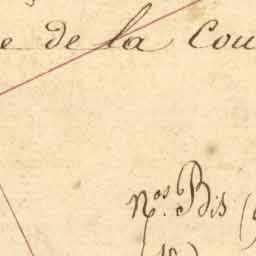 e de la Cou
Nos. Bis (